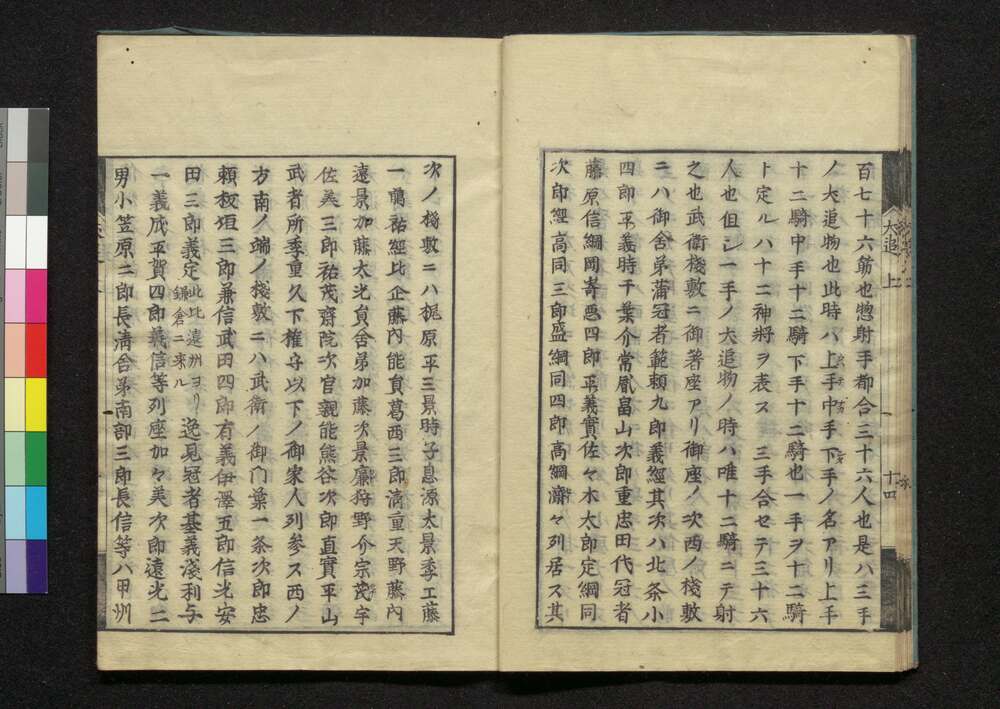 百七十六筋也惣射手都合三十六人也是ハ三手
ノ大追物也此時ハ上手中手下手ノ名アリ上手
十二騎中手十二騎下手十二騎也一手ヲ十二騎
ト定ルハ十二神将ヲ表ス三手合セテ三十六
人也但シ一手ノ大追物ノ時ハ唯十二騎ニテ射
之也武衛棧敷ニ御著座アリ御座ノ次西ノ棧敷
ニハ御舎弟蒲冠者範頼九郎義經其次ハ北条小
四郎平義時千葉介常胤畠山次郎重忠田代冠者
藤原信綱岡嵜悪四郎平義實佐々木太郎定綱同
次郎經高同三郎盛綱同四郎高綱濟々列居ス其
大追 上
十四
次ノ棧敷ニハ梶原平三景時子息源太景季工藤
一﨟祐經比企藤内能貟葛西三郎清重天野藤内
遠景加藤太光貟舎弟加藤次景廉狩野介宗茂宇
佐美三郎祐茂齋院次官親能熊谷次郎直實平山
武者所季重久下権守以下ノ御家人列参ス西ノ
方南ノ端ノ棧敷ニハ武衛ノ御門葉一条次郎忠
頼板垣三郎兼信武田四郎有義伊澤五郎信光安
田三郎義定此比遠州ヨリ鎌倉ニ来ル逸見冠者基義淺利与
一義成平賀四郎義信等列座加々美次郎遠光二
男小笠原二郎長清合弟南部三郎長信等ハ甲州